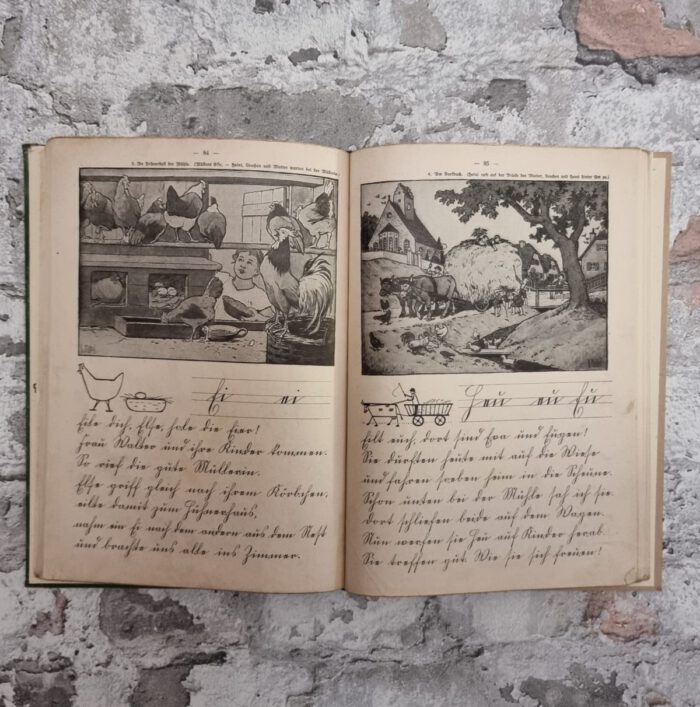 — 84 —
3. Im Hühnerstall der Mühle. (Müllers Else. — Heini, und Mutter warten bei der Müllerin.)
Ei ei
Eile dich, Else, hole die Eier!
Frau Walter und ihre Kinder kommen.
So rief die gute Müllerin.
Else griff gleich nach ihrem Körbchen,
eilte damit zum Hühnerhaus,
nahm ein Ei nach dem andern aus dem Nest
und brachte uns alle ins Zimmer.
— 85 —
4. Am Dorfbach. (Heini ruft auf der Brücke der Mutter, und Hans hinter ihm zu.)
Heu eu Eu
Eilt euch, dort sind Eva und Eugen!
Sie durften heute mit auf die Wiese
und fahren soeben heim in die Scheune.
Schon unten bei der Mühle sah ich sie.
Dort schliefen beide auf dem Wagen.
Nun werfen sie Heu auf Kinder herab.
Sie treffen gut. Wie sie sich freuen!